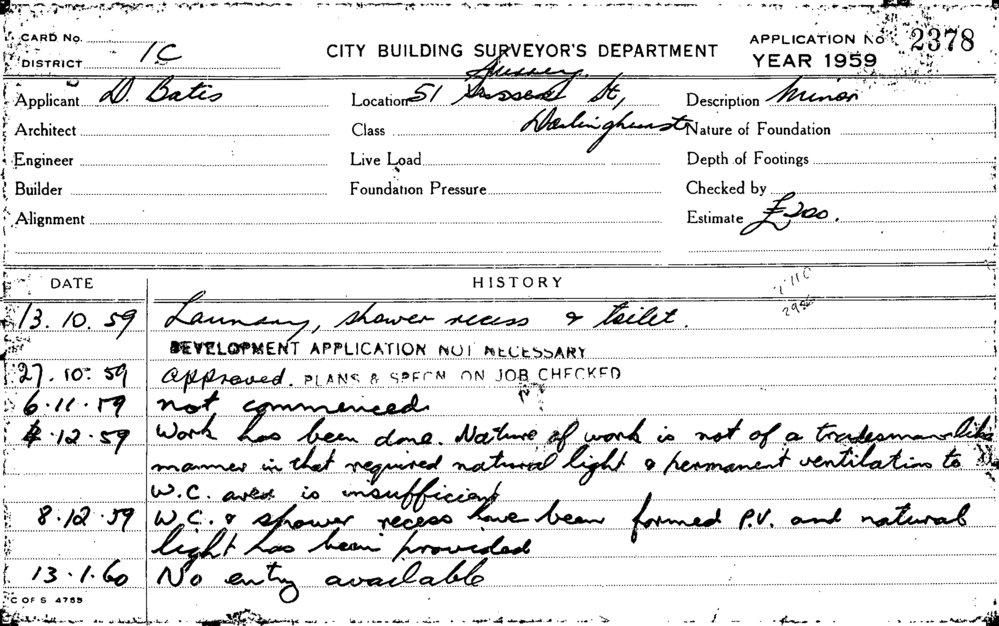 CARD No.
DISTRICT 1C
CITY BUILDING SURVEYOR'S DEPARTMENT
APPLICATION No 2378
YEAR 1959
Applicant D. Bates
Location 51 St, Darlinghurst
Description Minor
Architect
Class
Nature of Foundation
Engineer
Live Load
Depth of Footings
Builder
Foundation Pressure
Checked by
Alignment
Estimate £200.
DATE HISTORY
13.10.59 Laundry, shower recess & toilet.
DEVELOPMENT APPLICATION NOT NECESSARY
27.10.59 approved. PLANS & SPECN. ON JOB CHECKED
6.11.59 not commenced.
4.12.59 Work has been done. Nature of work is not of a tradesmanlike
manner in that required natural light & permanent ventilation to
W.C. area is insufficient
8.12.59 W.C. & shower recess have been formed P.V. and natural
light has been provided
13.1.60 No entry available
C OF S 4755